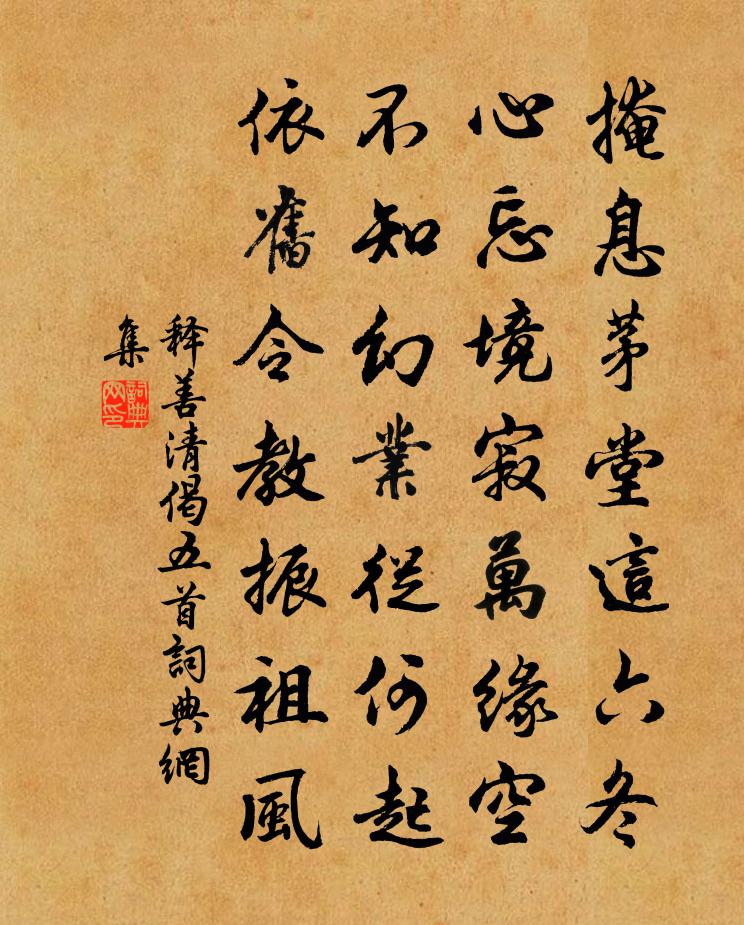 掩息茅堂這六冬
心忘境寂萬緣空
不知幻業從何起
依舊令教振祖風
释善清偈五首詞典網
集
詞典
网印